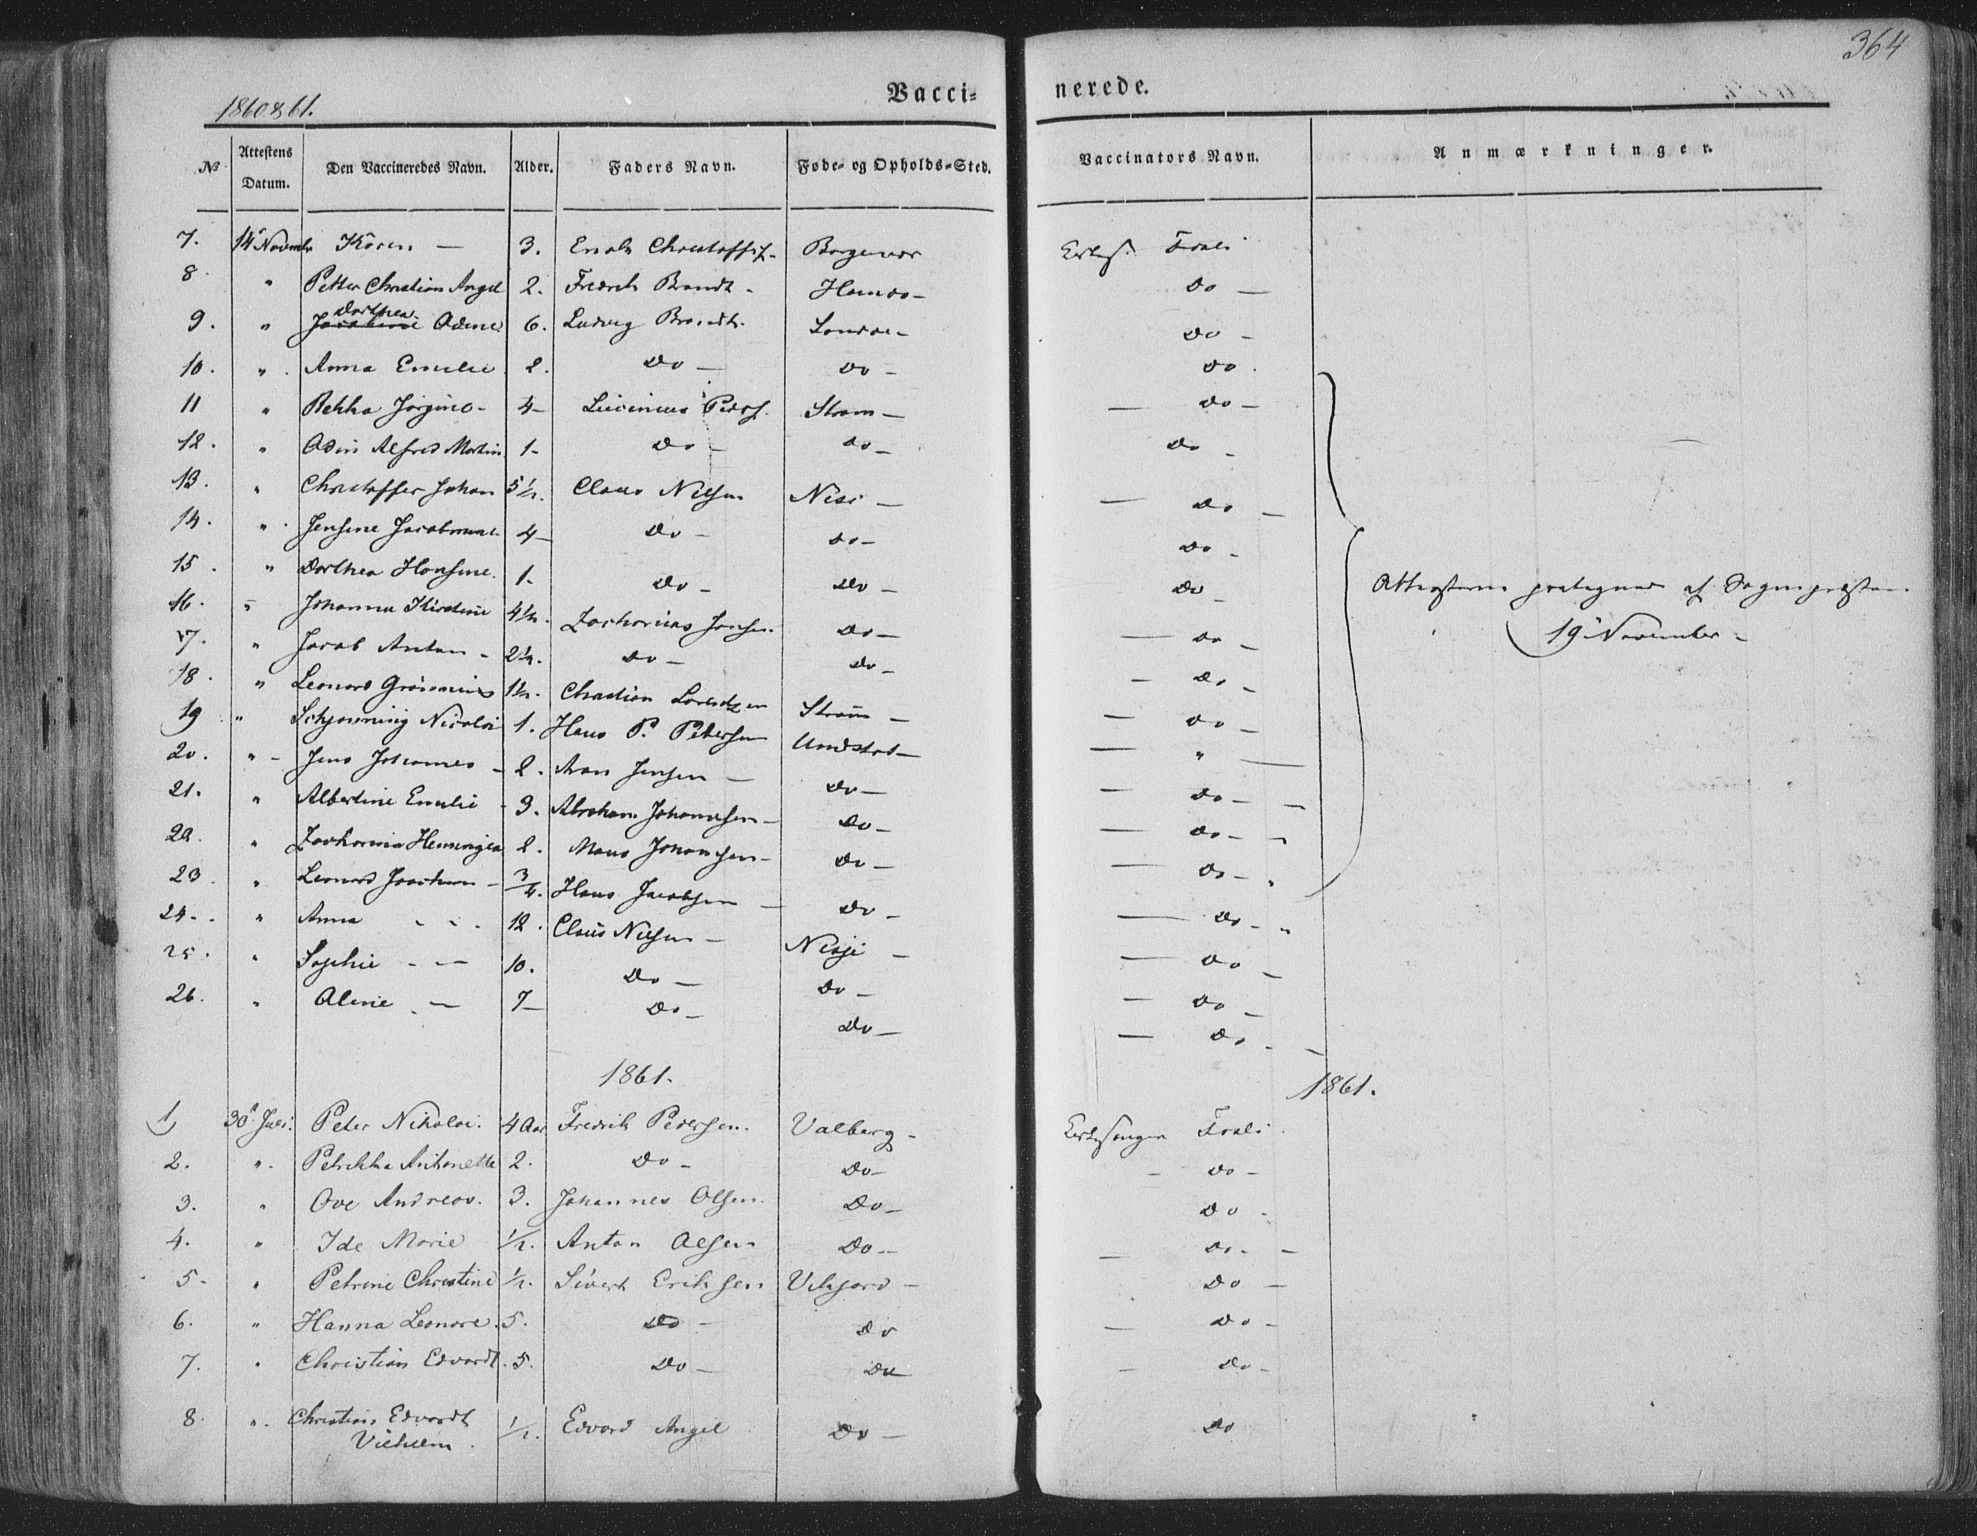 364
1860 & 61.
Vacci- nerede.
№ Attestens Datum. Den Vaccineredes Navn. Alder. Faders Navn. Føde- og Opholds-Sted. Vaccinators Navn. Anmærkninger.
7. 14 Novembr Karen — 3. Enok Christoffs. Borgevær Kirkes.
8 " Petter Christian Angel 2. Fredrik Brandt - Do —
9. " Dorthea Odine 6. Ludvig Brandt. Do -
10. " Anna Emilie 2. Do — Do - Do.
11 " Rebka Jørgine- 4- Strøm — — Do -
12. " Odin Alfred Martin 1- Do - Do - Do -
13. " Christoffer Johan 5½. Claus Nilsen — Do —
14. " Jensine Jacobmine 4- Do - Do - Do -
15. " Dorthea Hansine. 1- Do - Do - Do - Attesterne af Sognepræsten
16. " Johanna Kirstine 4½. Zacharias Jensen. Do - — Do - 19 November -
17. " Jacob Anton - 2½. Do - Do - — Do -
18. " Leonard 1½. Christian Lorentzen Strøm — — Do -
19 " Schjønning Nicolai 1. Hans P. Petersen Undstad — — " —
20. " Jens Johannes - 2. Aron Jensen — Do — — Do - -
21. " Albertine Emilie - 3. Abraham Johansen - Do - — Do - "
22. " 2. Mons Johansen - Do - — Do - "
23. " Leonard Joachim - 3/4. Hans Jacobsen — Do - — Do - "
24. " Anna - - - 12. Claus Nilsen — Nesje — — Do -
25. " Sophie - — 10. Do — Do — — Do -
26. " Aline — 7- Do - Do - — Do - -
1861. 1861.
1 30 Juli. Peter Nikolai. 4 Aar Fredrik Pedersen. Valberg - Kirkesanger
2. " Petrikka Antonette 2. Do - Do - - Do -
3. " Ove Andreas. 3. Johannes Olsen. Do - Do -
4. " Ide Marie ½. Anton Olsen Do - — Do - -
5. " Petrine Christine ½. Sivert Eriksen Vikjord — Do —
6. " Hanna Leonore. 5. Do - Do — Do -
7. " Christian Edvardt. 5. Do — Do — Do -
8. " Christian Edvardt ½. Edvard Angel Do — Do
Vilhelm.